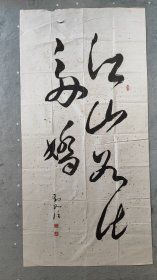 江山如此
多娇